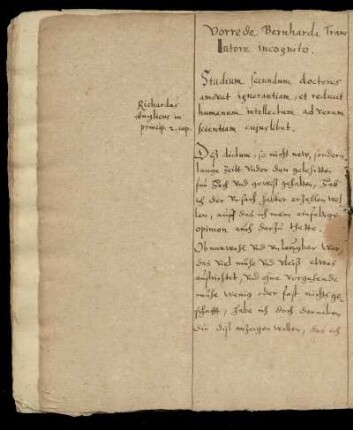 Vorrede Bernhardi Trans
latore incognito.
Studium secundum doctores
amovet ignorantiam, et reducit
humanum intellectum ad veram
scientiam cujuslibet.
Richardus
Anglicus in
princip. 2. cap.
Diß dictum, so nicht new, sondern
lange Zeitt under den gelehrten
für hoch und gewiß gehalten, hab
ich der Ursach halber erzellen wol
len, auff das ich mein einfeltige
opinion auch darzu thette.
das viel mühe und vleiß etwas
außrichtet, und ohne vorgehende
mühe wenig oder fast nichts ge
schafft, habe ich doch darneben
die diß anzeigen wollen, das ich